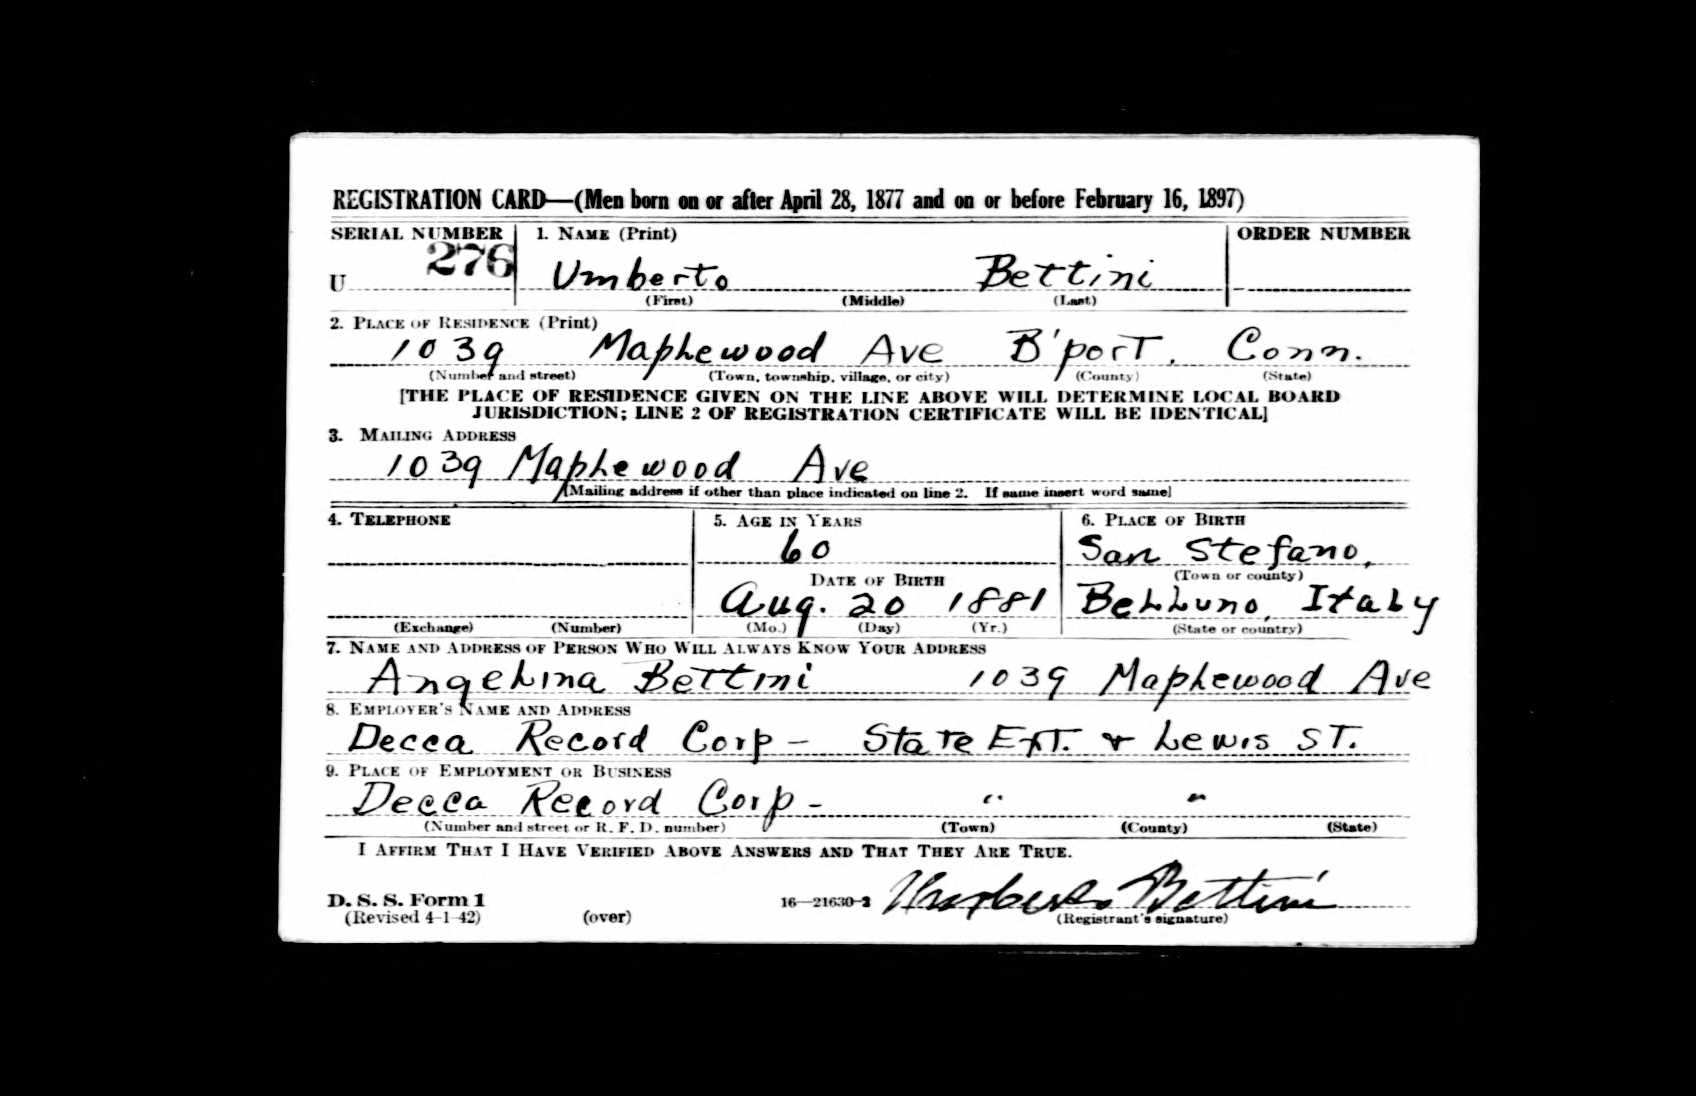 REGISTRATION CARD—(Men born on or after April 28, 1877 and on or before February 16, 1897)
SERIAL NUMBER 1. NAME (Print) ORDER NUMBER
U 276 Umberto Bettini
(First) (Middle) (Last)
2. PLACE OF RESIDENCE (Print)
1039 Maplewood Ave B'port, Conn.
(Number and street) (Town, township, village, or city) (County) (State)
[THE PLACE OF RESIDENCE GIVEN ON THE LINE ABOVE WILL DETERMINE LOCAL BOARD
JURISDICTION; LINE 2 OF REGISTRATION CERTIFICATE WILL BE IDENTICAL]
3. MAILING ADDRESS
1039 Maplewood Ave
[Mailing address if other than place indicated on line 2. If same insert word same]
4. TELEPHONE 5. AGE IN YEARS 6. PLACE OF BIRTH
60 San Stefano,
DATE OF BIRTH (Town or county)
Aug. 20 1881 Belluno, Italy
(Exchange) (Number) (Mo.) (Day) (Yr.) (State or country)
7. NAME AND ADDRESS OF PERSON WHO WILL ALWAYS KNOW YOUR ADDRESS
Angelina Bettini 1039 Maplewood Ave
8. EMPLOYER'S NAME AND ADDRESS
Decca Record Corp - State Ext. & Lewis ST.
9. PLACE OF EMPLOYMENT OR BUSINESS
Decca Record Corp - " "
(Number and street or R. F. D. number) (Town) (County) (State)
I AFFIRM THAT I HAVE VERIFIED ABOVE ANSWERS AND THAT THEY ARE TRUE.
D. S. S. Form 1 16—21630-2 Umberto Bettini
(Revised 4-1-42) (over) (Registrant's signature)